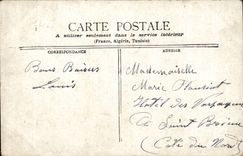 CARTE POSTALE
A utiliser seulement dans le service intérieur
(France, Algérie, Tunisie)
CORRESPONDANCE
ADRESSE
Bons Baisers
Louis
Mademoiselle
Marie
Hotel des Voyageurs
à Saint Brieuc
(Côte du Nord)